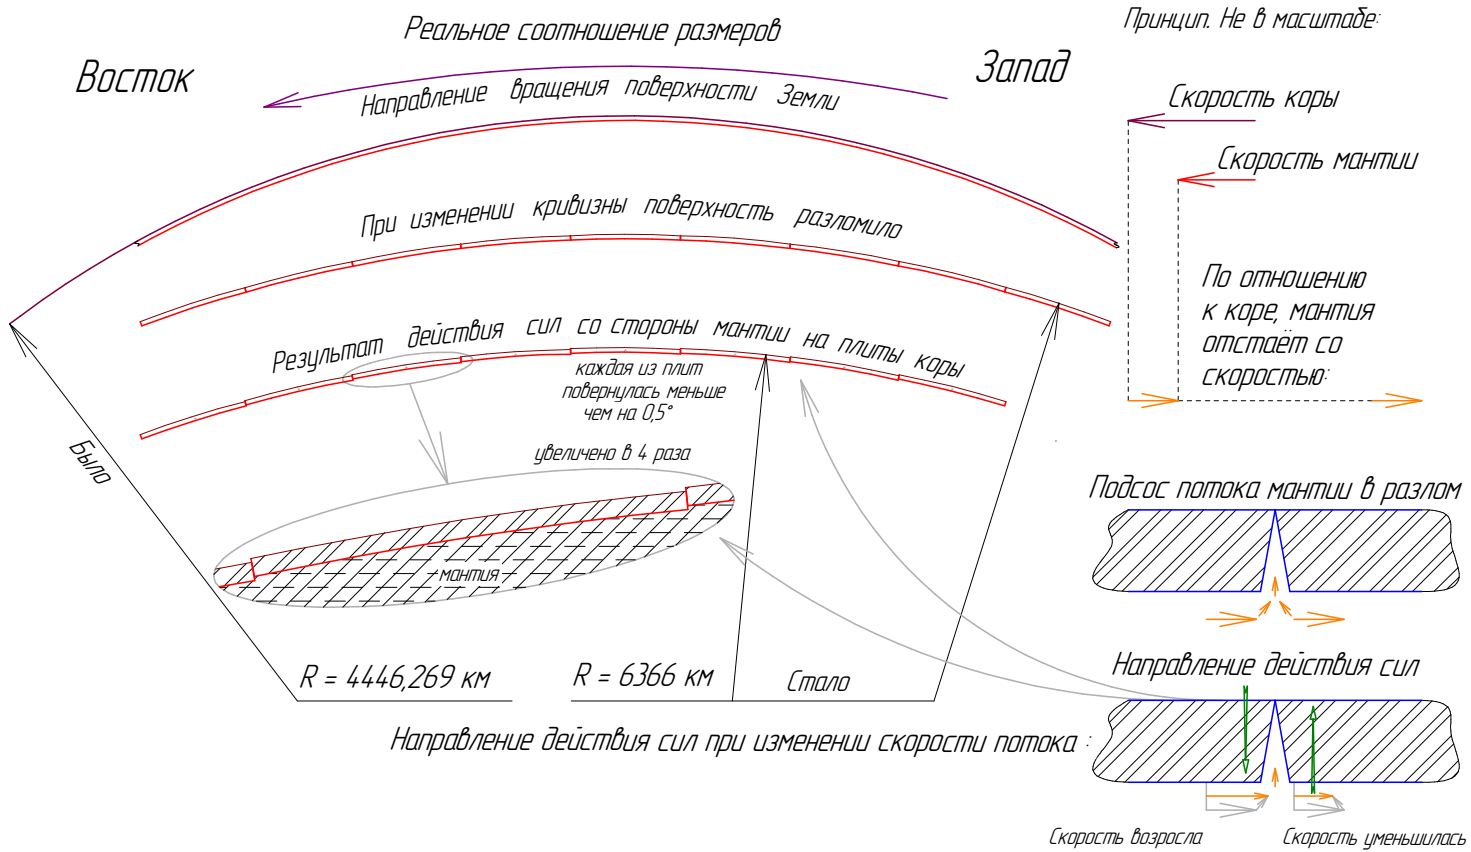 Реальное соотношение размеров
Принцип. Не в масштабе:
Восток
Запад
Направление вращения поверхности Земли
Скорость коры
Скорость мантии
При изменении кривизны поверхность разломило
По отношению
к коре, мантия
отстаёт со
скоростью:
Результат действия сил со стороны мантии на плиты коры
каждая из плит
повернулась меньше
чем на 0,5°
Было
увеличено в 4 раза
мантия
Подсос потока мантии в разлом
R = 4446,269 км
R = 6366 км
Стало
Направление действия сил
Направление действия сил при изменении скорости потока :
Скорость возросла
Скорость уменьшилась